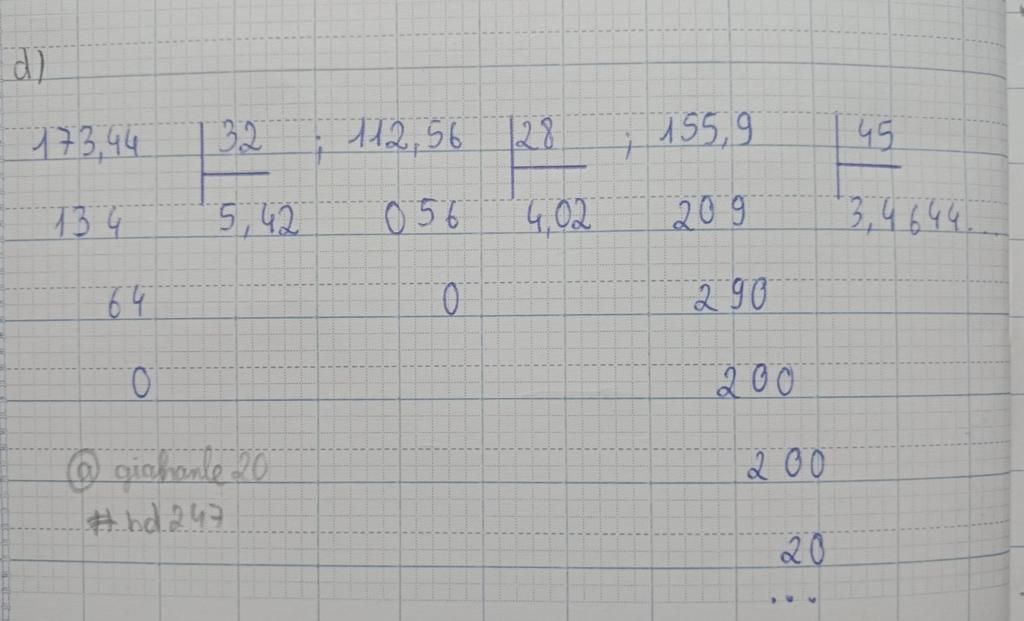 d)
173,44 32 ; 112,56 28 ; 155,9 45
134 5,42 056 4,02 209 3,4644...
64 0 290
0 200
@giahanle20 200
#hd247
20
...